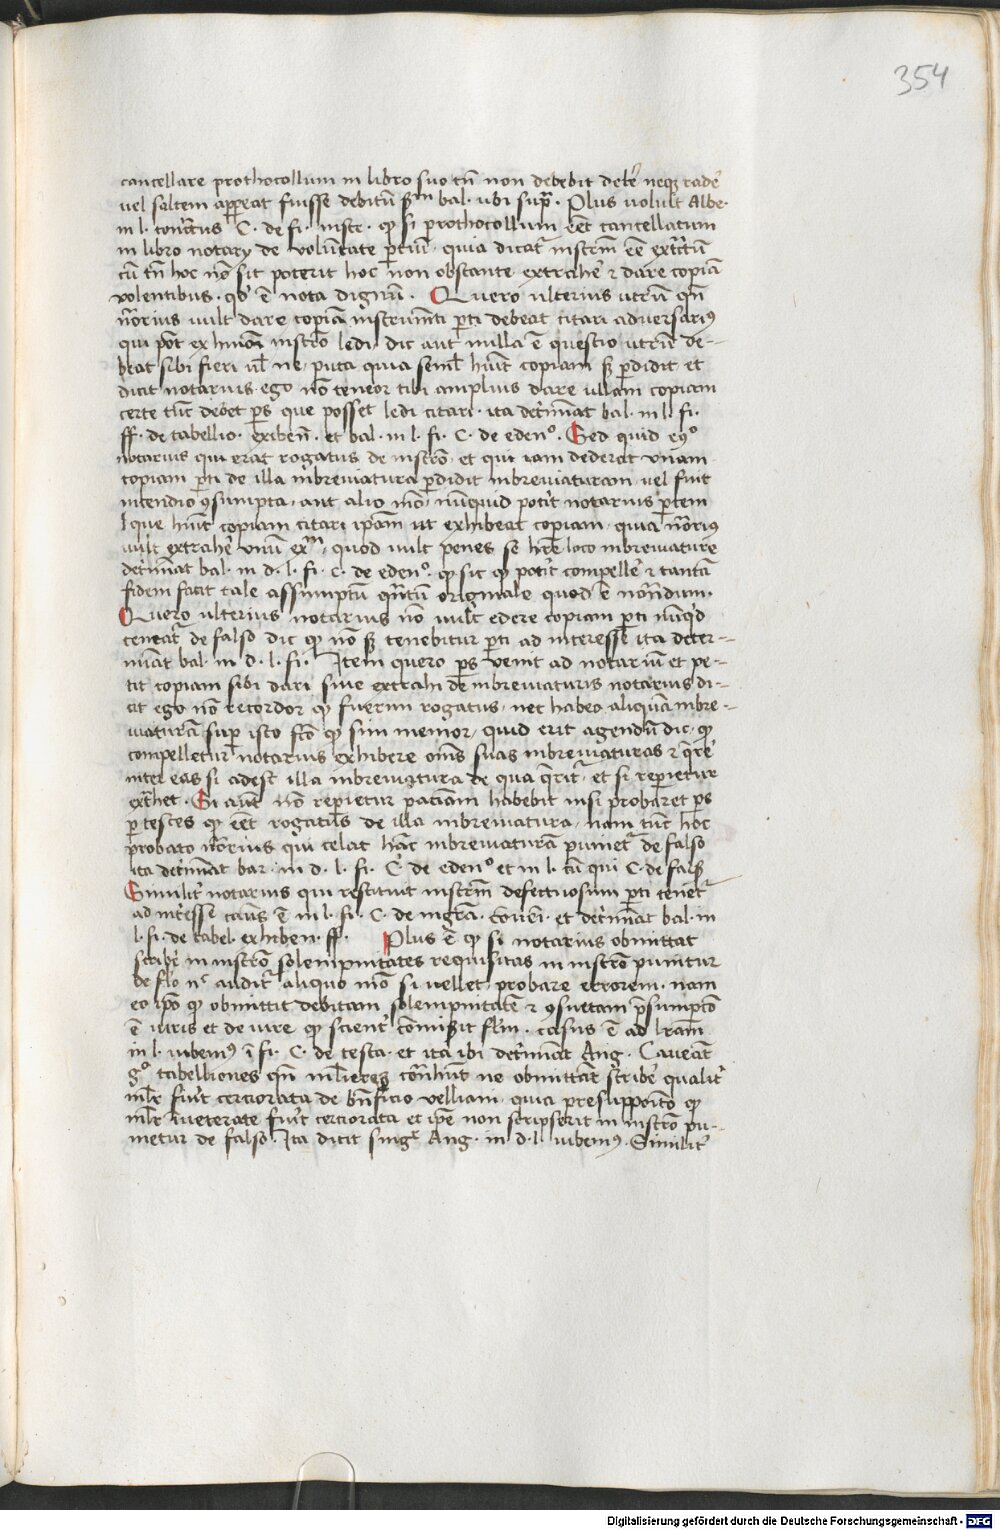 354
cancellare prothocollum in libro suo tn̄ non debebit delé neqꝫ radé
vel saltem appeat fuisse debitū ẜm bal. ubi supᷓ. Plus voluit Albe.
in l. contractus C. de fi. instr. ꝙ si prothocollum eēt cancellatum
in libro notarij de volūtate ꝑtiū. quia dicatᷣ instrm̄ eē extractū
cū tn̄ hoc nō sit poterit hoc non obstante extrahé ⁊ dare copiā
volentibus. qd' ē nota dignū. Quero ulterius utrū qn̄
notarius uult dare copiā instrumēti ꝑti debeat citari adversariꝯ
qui pōt ex hm̄oi instrō ledi dic aut nulla ē questio utrū de-
beat sibi fieri ul' ne, puta quia semel hūit copiam sꝫ ꝑdidit et
dicit notarius ego nō teneor tibi amplius dare ullam copiam
certe tūc debet ꝑs que posset ledi citari. ita detīnat bal. in l. fi.
ff. de tabellio. exiben̄. et bal. in l. fi. C. de edenᵒ. Sed quid eꝯᵒ
notarius qui erat rogatus de instrō. et qui iam dederat unam
copiam ꝑti de illa inbreviatura ꝑdidit inbreviaturam vel fuit
incendio ꝯsumpta, aut alio mō, nūquid potᷣit notarius ꝑtem
que hūit copiam citari ipam ut exhibeat copiam, quia notariꝯ
uult extrahé unū exm̄, quod uult penes se hr̄e loco inbreviature
detīnat bal. in d. l. fi. C. de edenᵒ. ꝙ sic ꝙ potᷣit compellé ⁊ tantā
fidem facit tale assumptū qn̄tū originale quod ē notandum.
Quero ulterius notarius nō uult edere copiam ꝑti nūqͥd
teneatᷣ de falso dic ꝙ nō sꝫ tenebitur ꝑti ad interesse ita deter-
mīat bal. in d. l. fi. Item quero ꝑs venit ad notariū et pe-
tit copiam sibi dari sive extrahi de inbreviaturis notarius di-
cit ego nō recordor ꝙ fuerim rogatus, nec habeo aliquā inbre-
viaturā suꝑ isto fcō ꝙ sim memor, quid erit agendū dic. ꝙ
compelletur notarius exhibere oēs suas inbreviaturas ⁊ qᷓré
inter eas si adest illa inbreviatura de qua qᷓritᷣ. et si reperietur
exᷣhet. Si aut nō reperietur paciam habebit nisi probaret ꝑs
ꝑ testes ꝙ eēt rogatus de illa inbreviatura, nam tūc hoc
probato notarius qui celat hāc inbreviaturā punietᷣ de falso
ita detīnat bar. in d. l. fi. C. de edenᵒ et in l. cū qui C. de fal.
Similitᷣ notarius qui restituit instrm̄ defectuosum ꝑti tenetᷣ
ad intᷣesse casus ē in l. fi. C. de et detīnat bal. in
l. fi. de tabel. exhiben. ff. Plus ē ꝙ si notarius obmittat
scribé in instrō solempnitates requisitas in instrō punitur
de flo nᶜ auditᷣ aliquo mō si vellet probare errorem. nam
eo ipō ꝙ obmittit debitam solempnitatē ⁊ ꝯsuetam p̄sumptō
ē iuris et de iure ꝙ scientᷣ cōmisit flm̄. casus ē ad lr̄am
in l. iubemꝯ ī fi. C. de testa. et ita ibi detīnat Ang. Caveāt
gᵒ tabelliones qn̄ mulieres cōtrahūt ne obmittāt scribé qualitᷣ
mulr̄ fuit cerciorata de bn̄ficio velliani. quia presuppoitō ꝙ
mulr̄ īveterate fuit cerciorata et ipē non scripserit in instrō pu-
nietur de falso. Ita dicit singᷣ Ang. in d. l. iubemꝯ. Similitᷣ
Digitalisierung gefördert durch die Deutsche Forschungsgemeinschaft - DFG